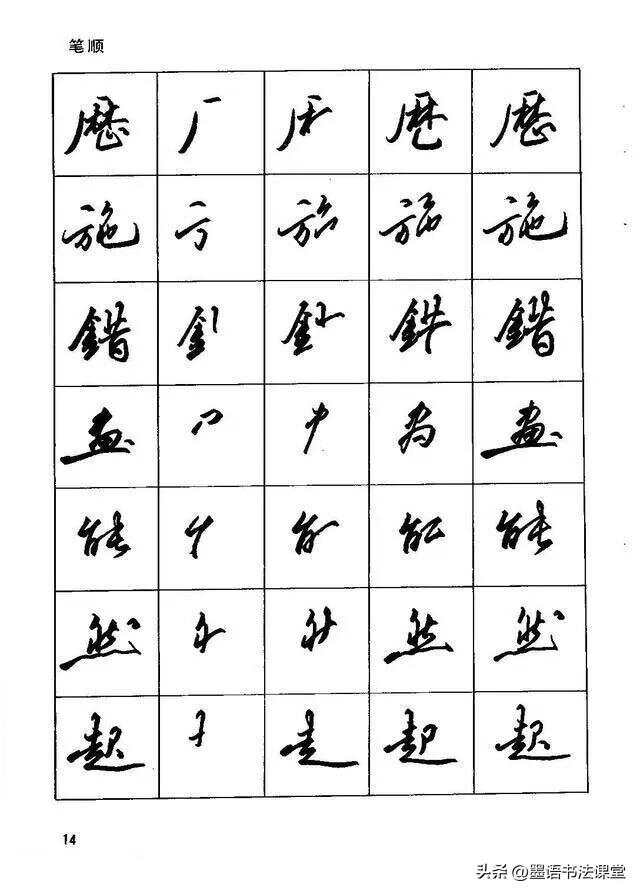 笔顺
歷 厂 歷
施 施
錯 錯
畫 畫
能 能
然 然 然
起 走 起 起
14
头条 @墨语书法课堂